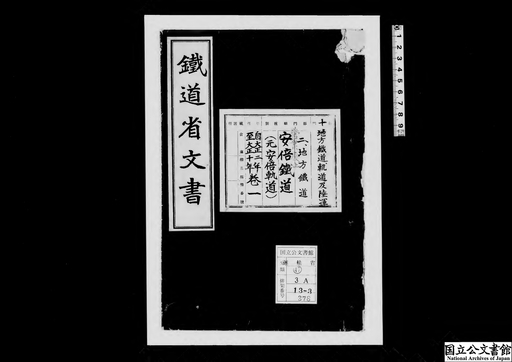 鐵道省文書
十、地方鐵道軌道及陸運
二、地方鐵道
安倍鐵道
(元安倍軌道)
自大正二年
至大正十年
卷一
国立公文書館
3 A
13-3
276
国立公文書館
National Archives of Japan
1 2 3 4 5 6 7 8 9